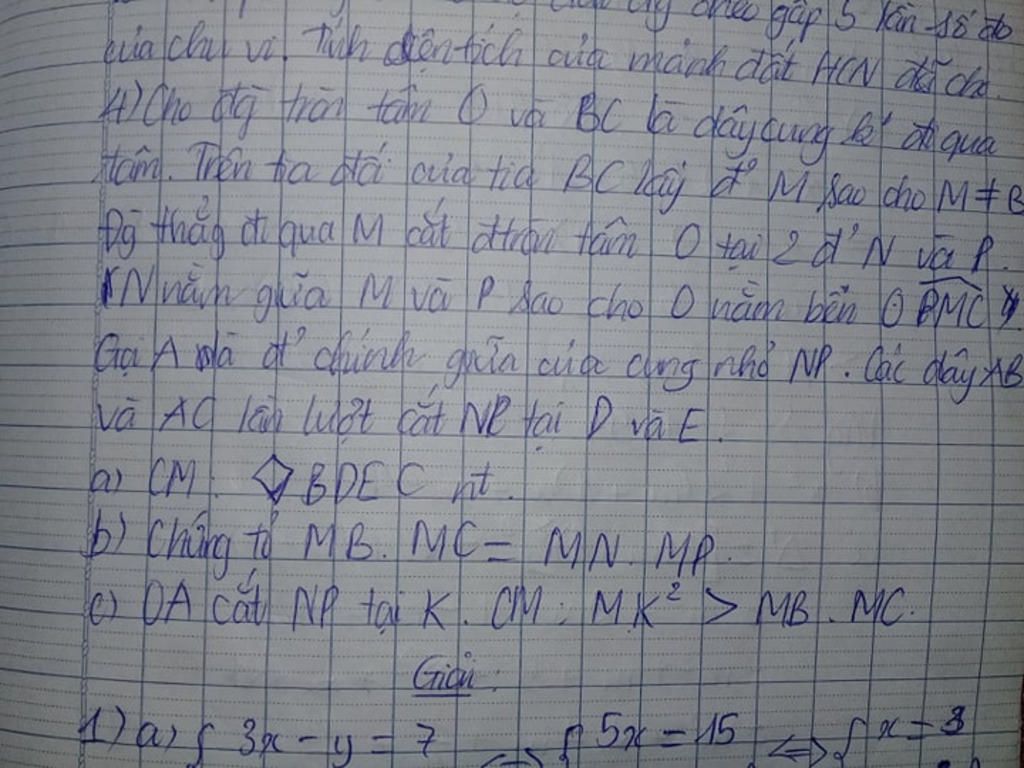 chéo gấp 5 lần số đo
của chu vi. Tính diện tích của mảnh đất HCN đã cho.
4) Cho đg tròn tâm O và BC là dây cung kº đi qua
tâm. Trên tia đối của tia BC lấy đ' M sao cho M ≠ B
Đg thẳg đi qua M cắt đtròn tâm O tại 2 đ' N và P.
(N nằm giữa M và P sao cho O nằm bên O PMC).
Gọi A là đ' chính giữa của cung nhỏ NP. Các dây AB
và AC lần lượt cắt NP tại D và E.
a) CM: BDEC nt.
b) Chứng tỏ MB. MC = MN. MP.
c) OA cắt NP tại K. CM: MK² > MB. MC.
Giải:
1) a) { 3x - y = 7 { 5x = 15 <=> { x = 3